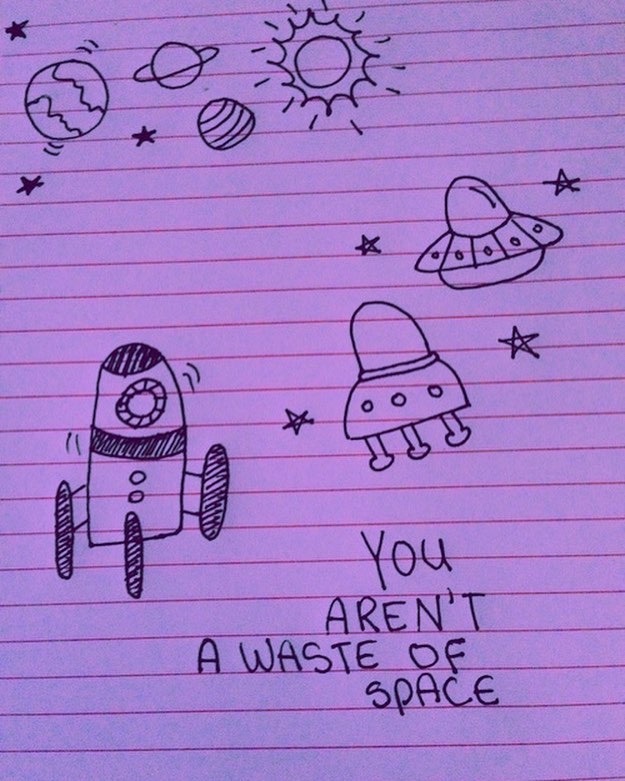 YOU
AREN'T
A WASTE OF
SPACE